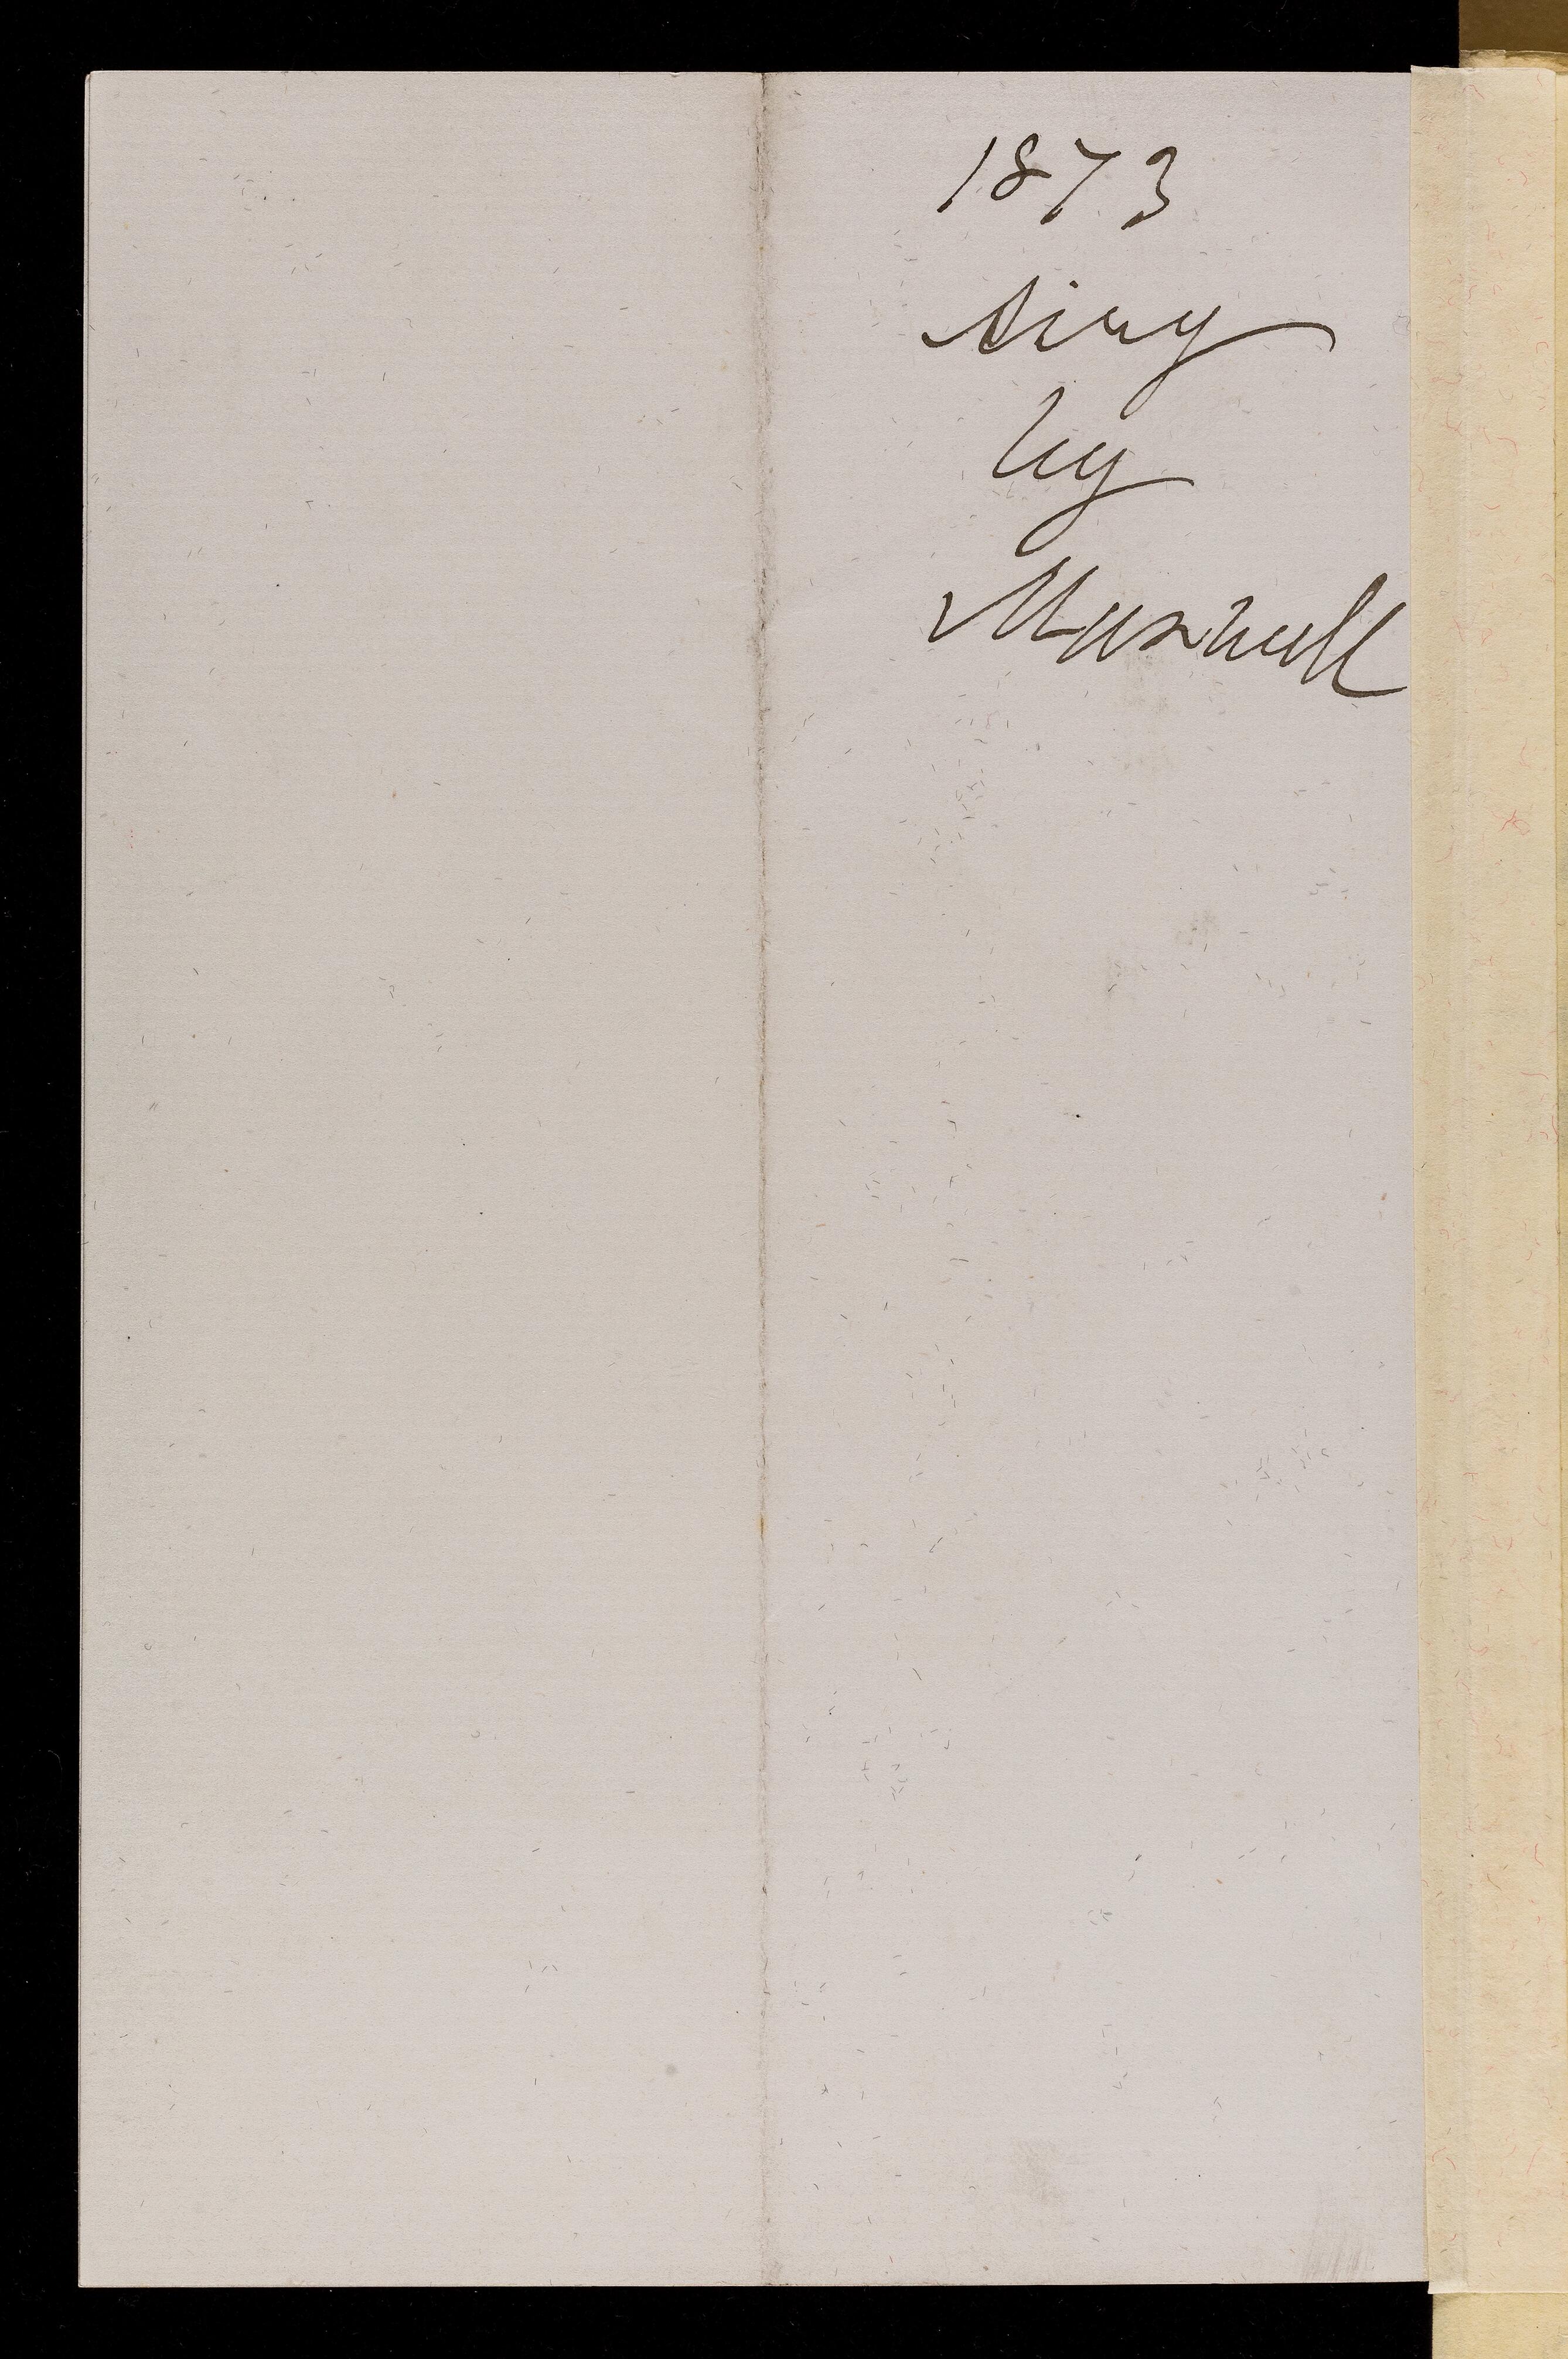 1873
Airy
by
Maxwell